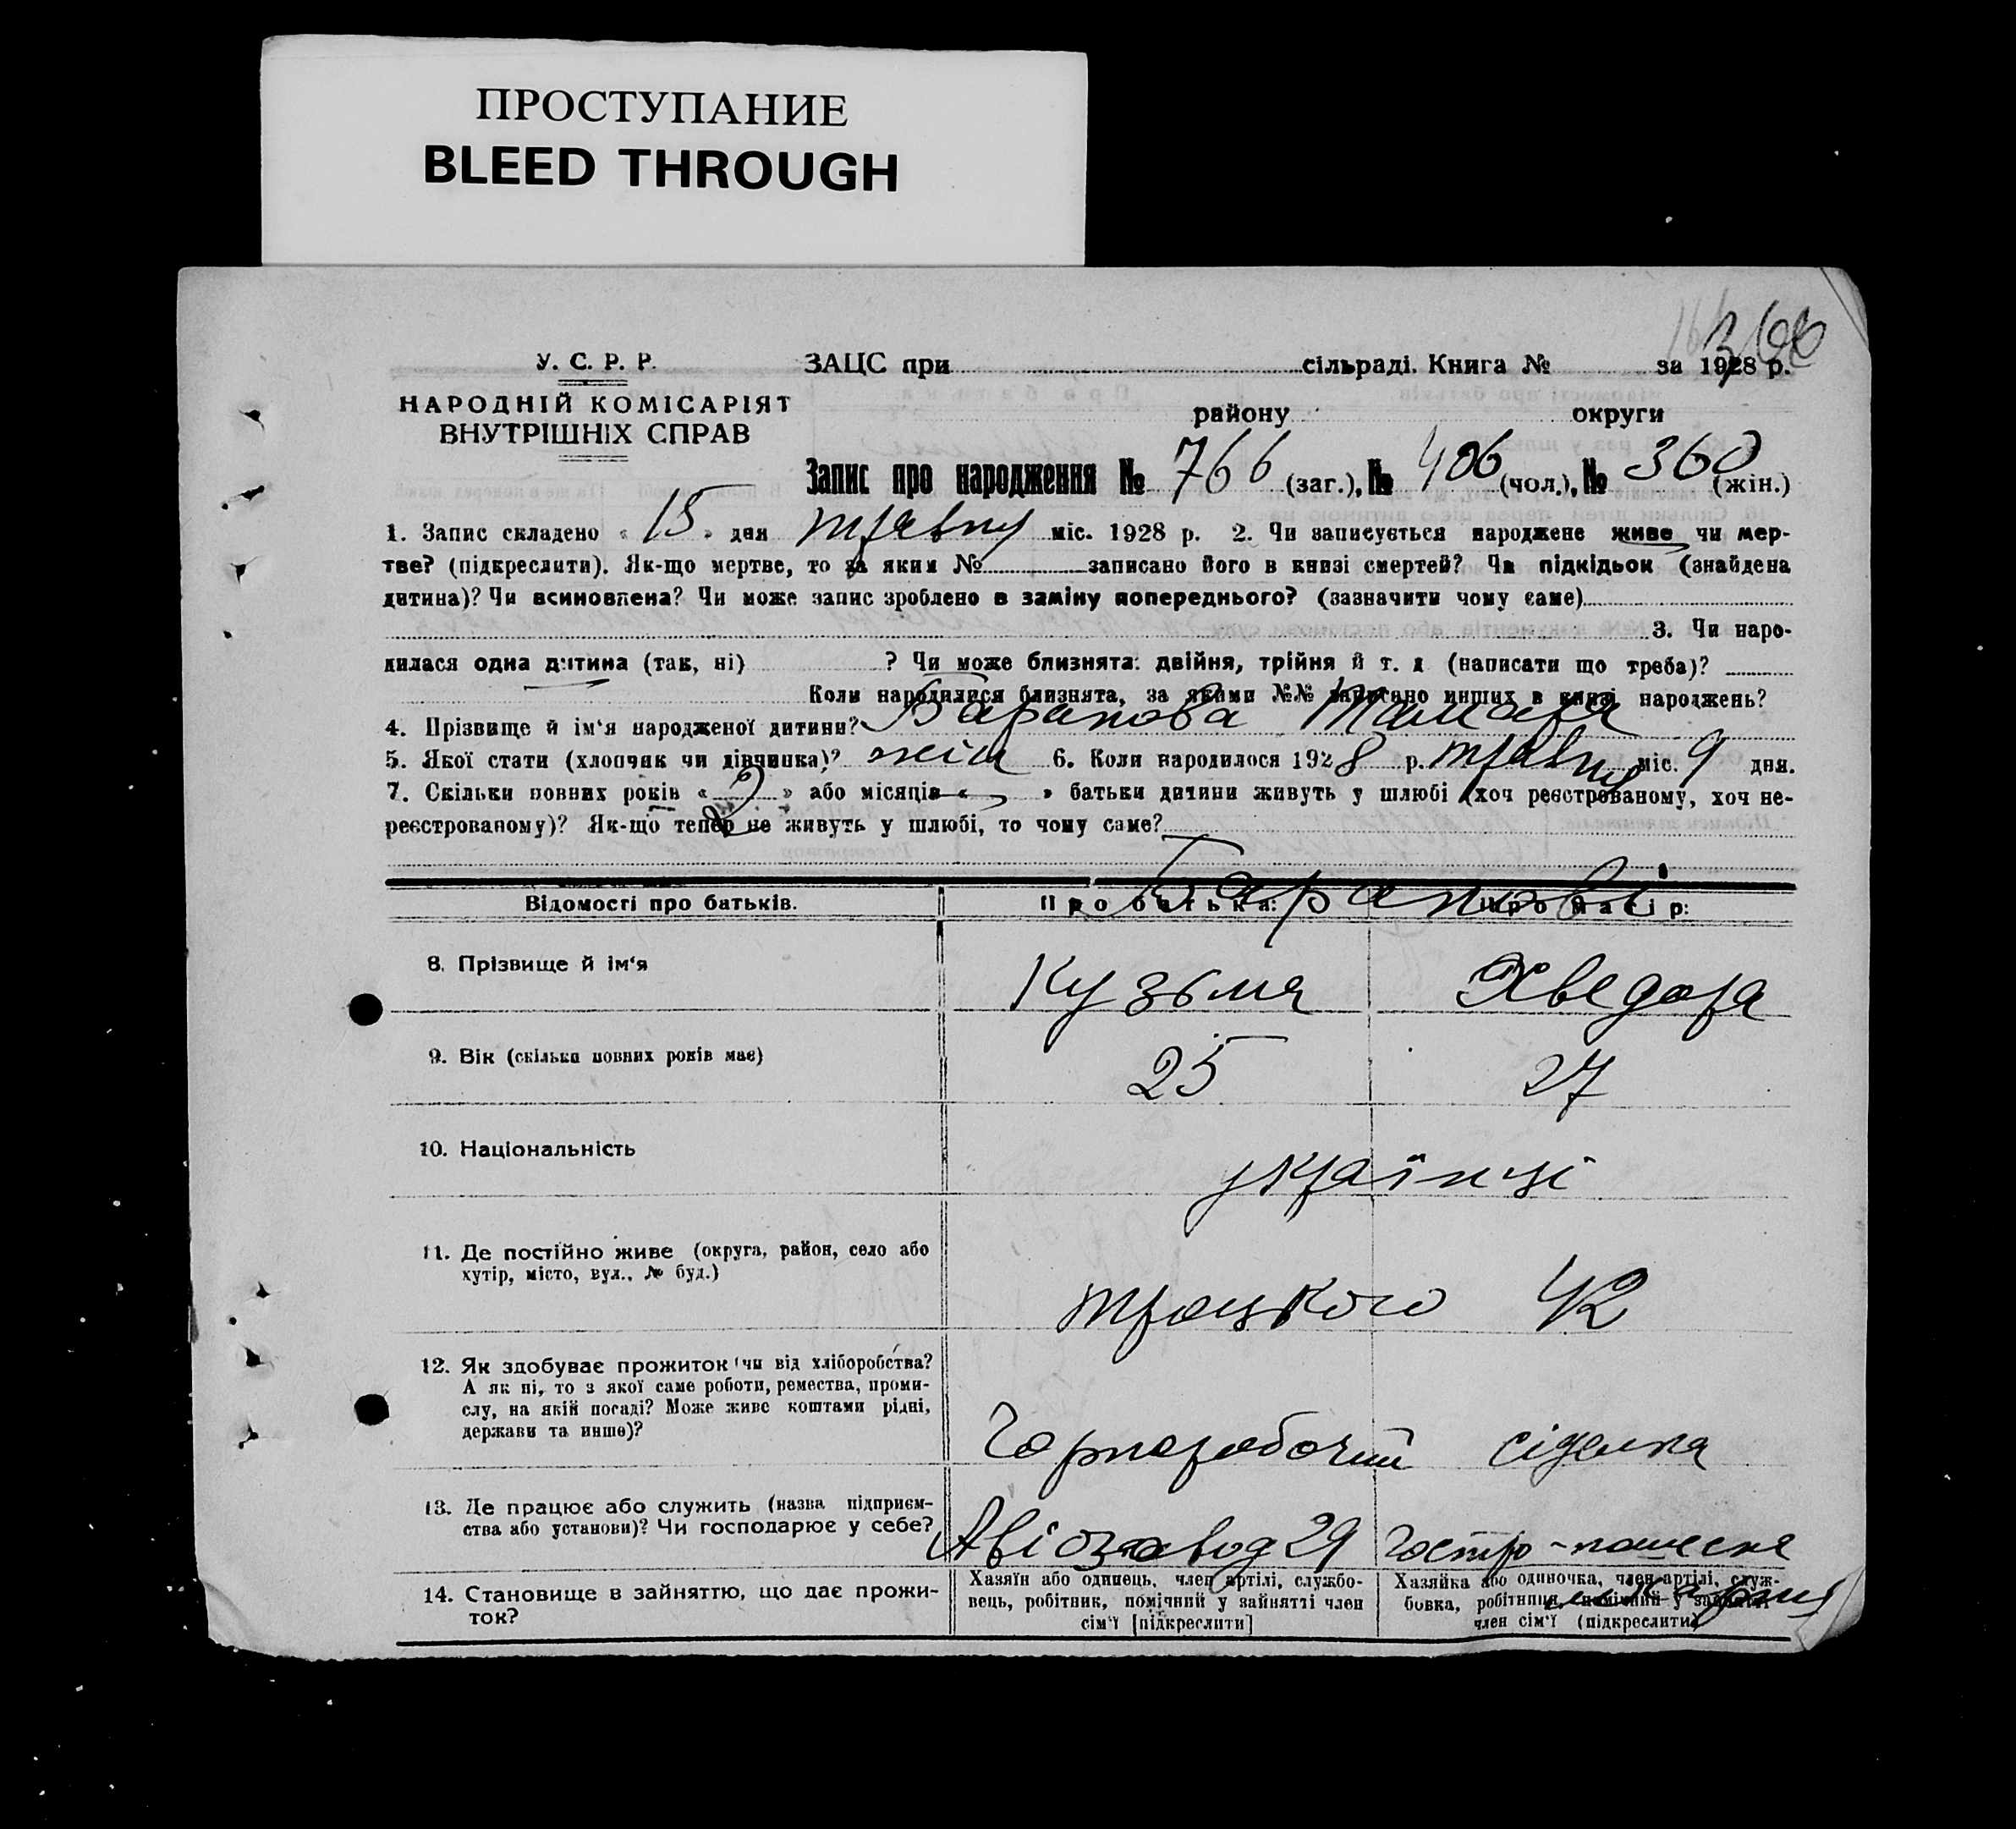 ПРОСТУПАНИЕ
BLEED THROUGH
366
У. С. Р. Р.
ЗАЦС при сільраді. Книга № за 1928 р.
НАРОДНІЙ КОМІСАРІЯТ
ВНУТРІШНІХ СПРАВ
району округи
Запис про народження № 766 (заг.), № 406 (чол.), № 360 (жін.)
1. Запис складено « 15 » дня травня міс. 1928 р. 2. Чи записується народжене живе чи мер-
тве? (підкреслити). Як-що мертве, то за яким № записано його в книзі смертей? Чи підкідьок (знайдена
дитина)? Чи всиновлена? Чи може запис зроблено в заміну попереднього? (зазначити чому саме)
3. Чи наро-
дилася одна дитина (так, ні) ? Чи може близнята: двійня, трійня й т. д (написати що треба)?
Коли народилися близнята, за якими №№ записано инших в книзі народжень?
4. Прізвище й ім‘я народженої дитини? Баранова Тамара
5. Якої стати (хлопчик чи дівчинка)? жін 6. Коли народилося 1928 р. травня міс. 9 дня.
7. Скільки повних років « 2 » або місяців « » батьки дитини живуть у шлюбі (хоч реєстрованому, хоч не-
реєстрованому)? Як-що тепер не живуть у шлюбі, то чому саме?
Баранові
Відомості про батьків. Про батька: Про матір:
8. Прізвище й ім‘я Кузьма Хведора
9. Вік (скільки повних років має) 25 27
10. Національність українці
11. Де постійно живе (округа, район, село або
хутір, місто, вул., № буд.)
Троцького 42
12. Як здобуває прожиток (чи від хліборобства?
А як ні, то з якої саме роботи, ремества, проми-
слу, на якій посаді? Може живе коштами рідні,
держави та инше)?
Чорноробочий сіделка
13. Де працює або служить (назва підприєм-
ства або установи)? Чи господарює у себе?
Авіозавод 29 Гостро-пошесна
лікарня
14. Становище в зайняттю, що дає прожи-
ток?
Хазяїн або одинець, член артілі, службо-
вець, робітник, помічний у зайнятті член
сім‘ї [підкреслити]
Хазяйка або одиночка, член артілі, служ-
бовка, робітниця, помічний у зайнятті
член сім‘ї (підкреслити)